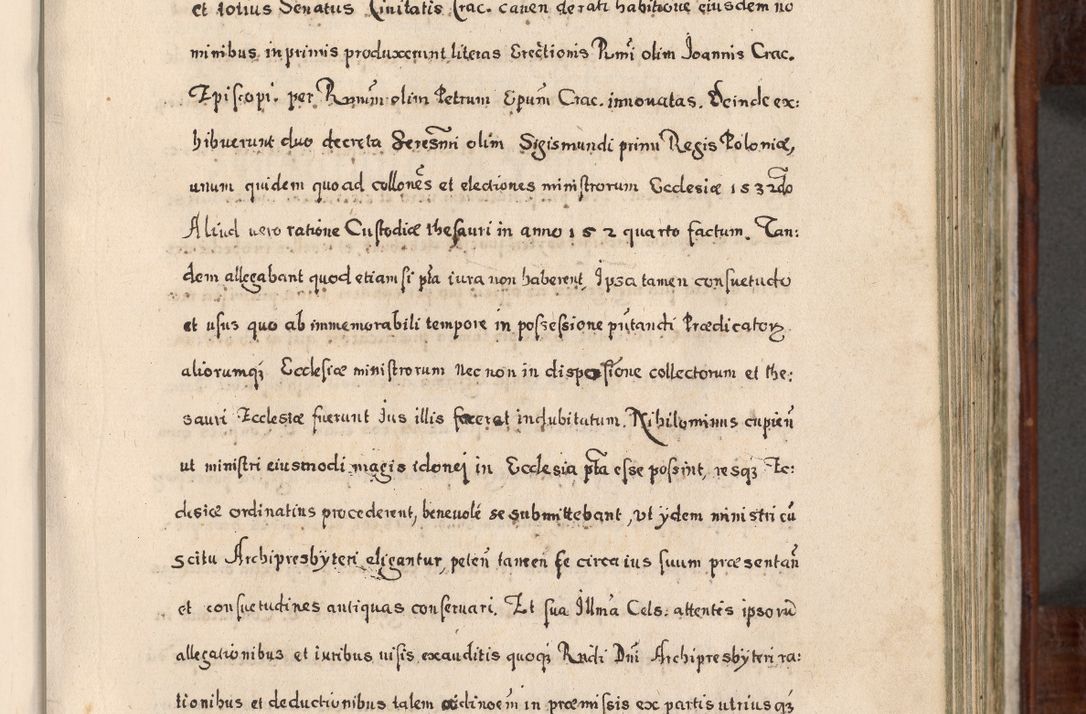 et totius Senatus Civitatis Crac. caven de rati habitione eiusdem no
minibus in primis produxerunt literas Erectionis Rmi olim Joannis Crac.
Episcopi. per Rmum olim Petrum Epum Crac. innovatas. Deinde ex:
hibuerunt duo decreta Seresmi olim Sigismundi primi Regis Poloniæ,
unum quidem quoad collones et electiones ministrorum Ecclesiæ 1532do
Aliud vero ratione Custodiæ thesauri in anno 152 quarto factum. Tan:
dem allegabant quod etiam si pta iura non haberent, Ipsa tamen consuetudo
et usus quo ab immemorabili tempore in possessione pntandi Prædicatorz
aliorumqz Ecclesiæ ministrorum Nec non in dispositione collectorum et the:
sauri Ecclesiæ fuerunt Jus illis facerat indubitatum. Nihilominus cupien
ut ministri eiusmodi magis idonei in Ecclesia pta esse possint, resqz Ec:
clesiæ ordinatius procederent, benevolé se submittebant, ut ydem ministri cu
scitu Archipresbyteri eligantur, peten tamen se circa ius suum præsentan
et consuetudines antiquas conservari. Et sua Illma Cels: attentis ipsoru
allegationibus et iuribus visis, exauditis quoqz Rndi Dni Archipresbyteri ra:
tionibus et deductionibus talem ordinoem in præmissis ex partis utriusqz